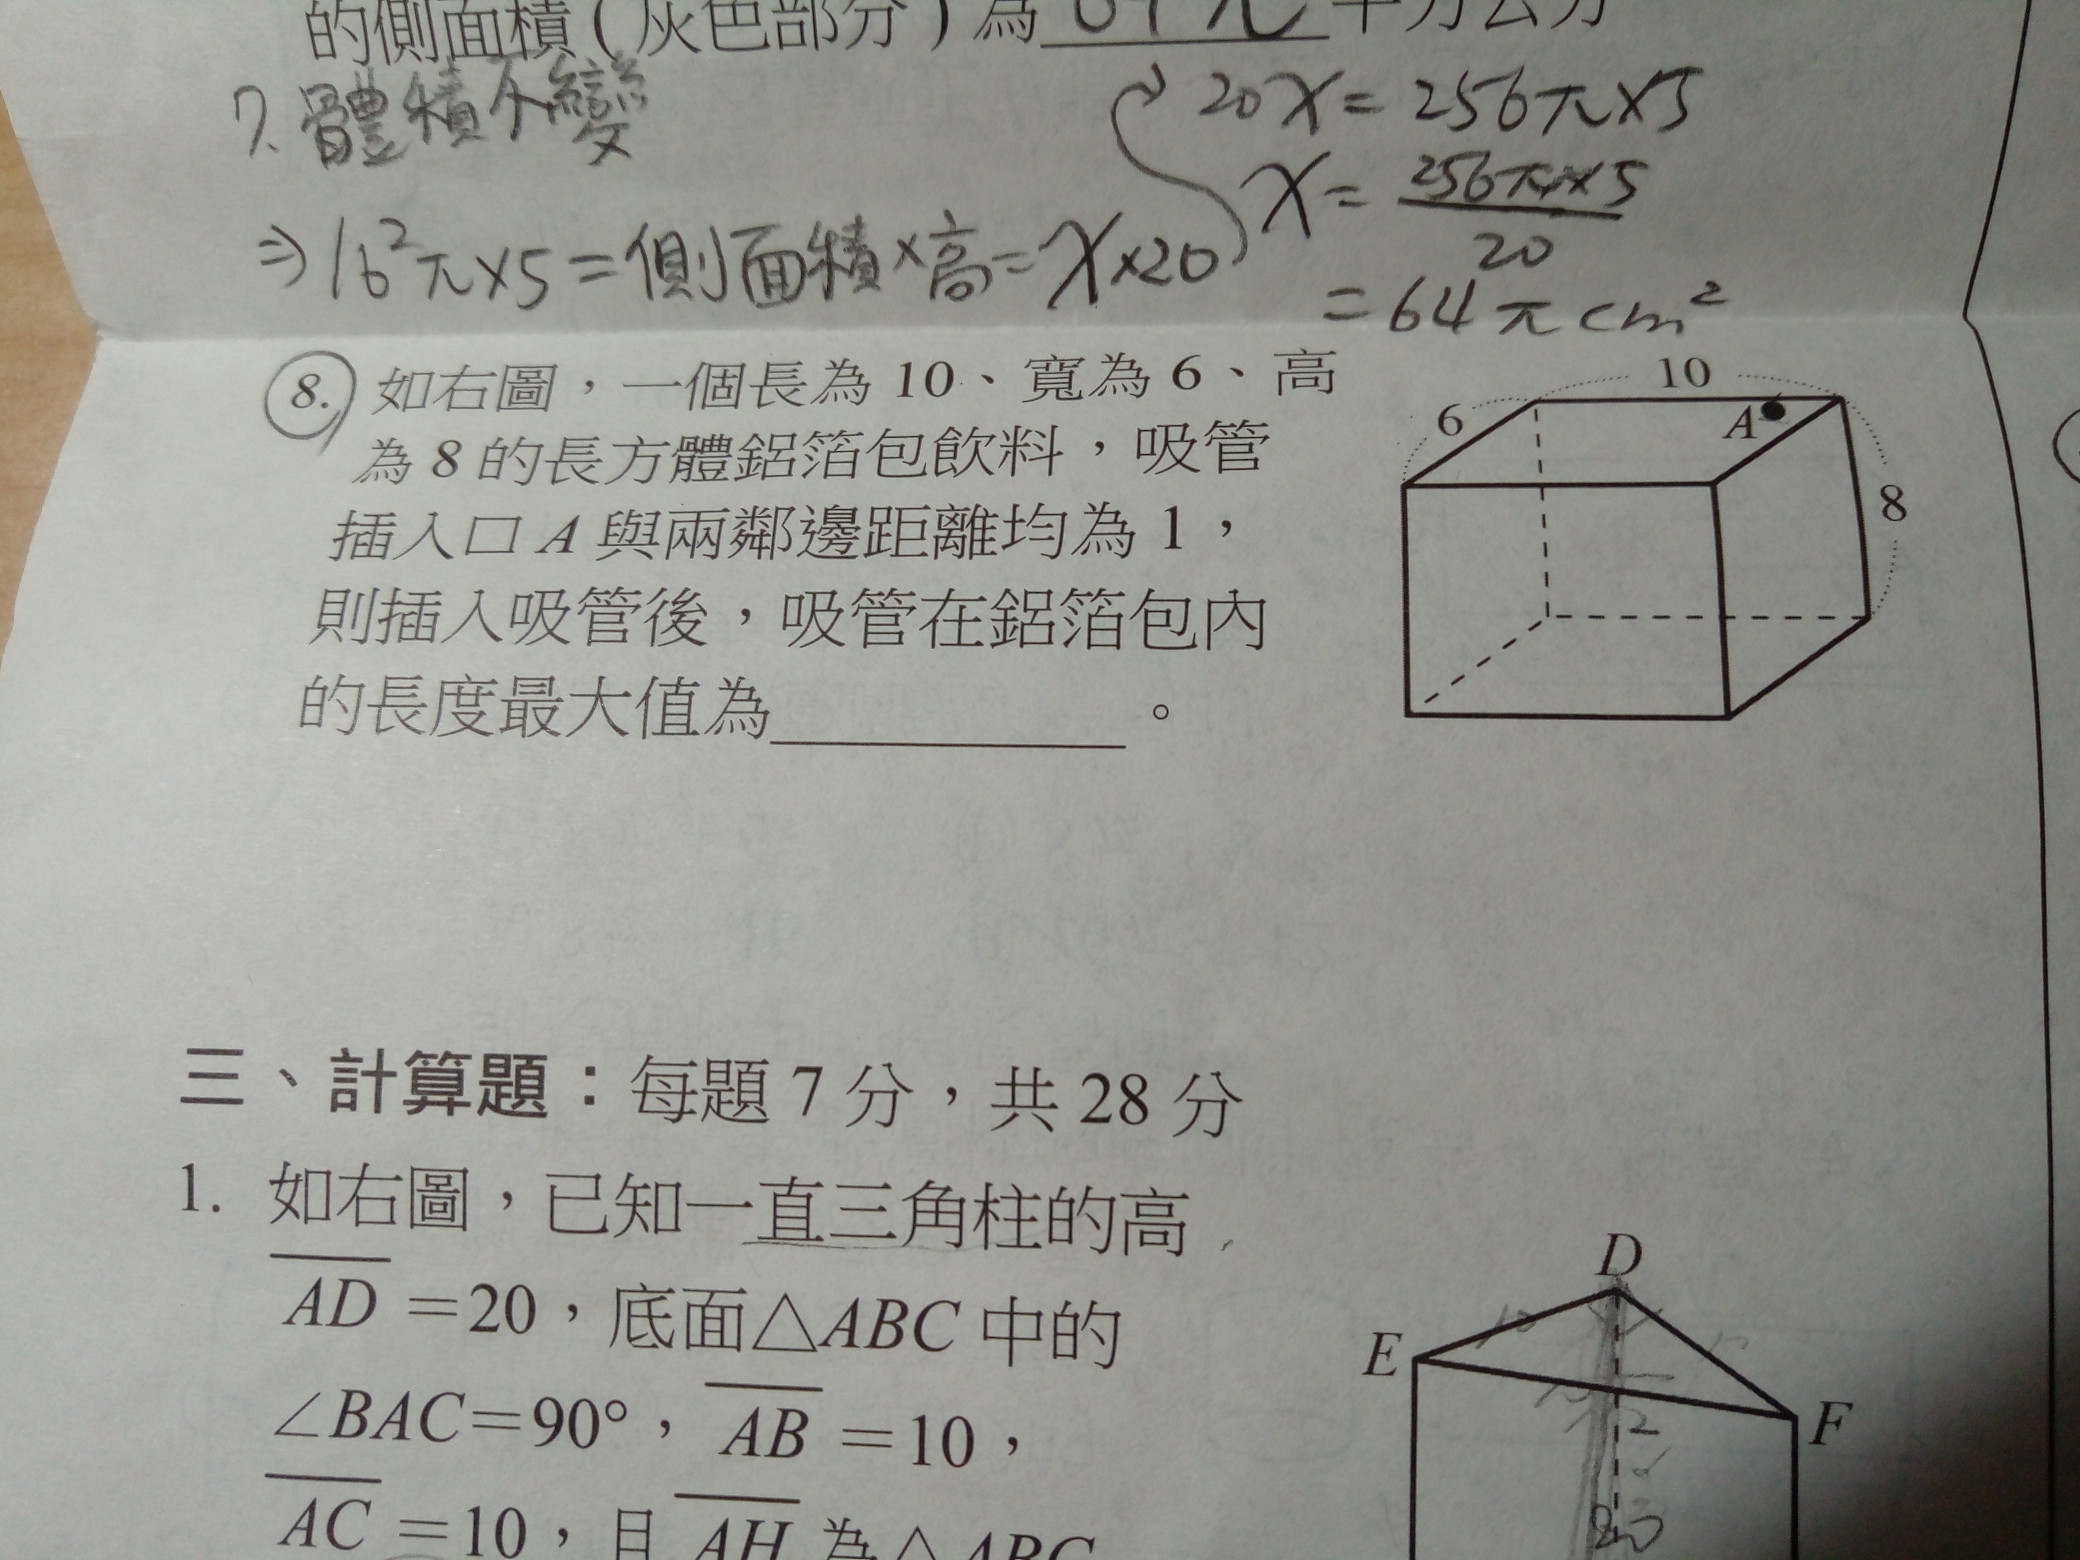 的側面積(灰色部分)為64π平方公分
7. 體積不變
20x=256π×5
x=256π×5/20
⇒16²π×5=側面積×高=x×20
=64πcm²
8. 如右圖,一個長為10、寬為6、高
為8的長方體鋁箔包飲料,吸管
插入口A與兩鄰邊距離均為1,
則插入吸管後,吸管在鋁箔包內
的長度最大值為________。
10
6
A
8
三、計算題:每題7分,共28分
1. 如右圖,已知一直三角柱的高
AD=20,底面△ABC中的
∠BAC=90°,AB=10,
AC=10,且AH為△ABC
D
E
F